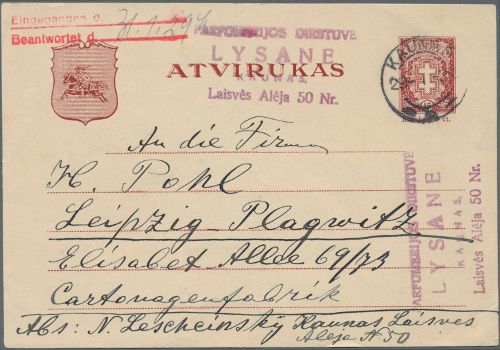 Eingegangen d.
Beantwortet d.
PARFUMERIJOS DIRBTUVĖ
LYSANE
KAUNAS.
Laisvės Alėja 50 Nr.
ATVIRUKAS
KAUNAS
An die Firma
H. Pohl
Leipzig-Plagwitz
Elisabet Allee 69/73
Cartonagenfabrik
Abs: N. Lescheinsky Kaunas Laisves
Aleja N 50
PARFUMERIJOS DIRBTUVĖ
LYSANE
KAUNAS.
Laisvės Alėja 50 Nr.